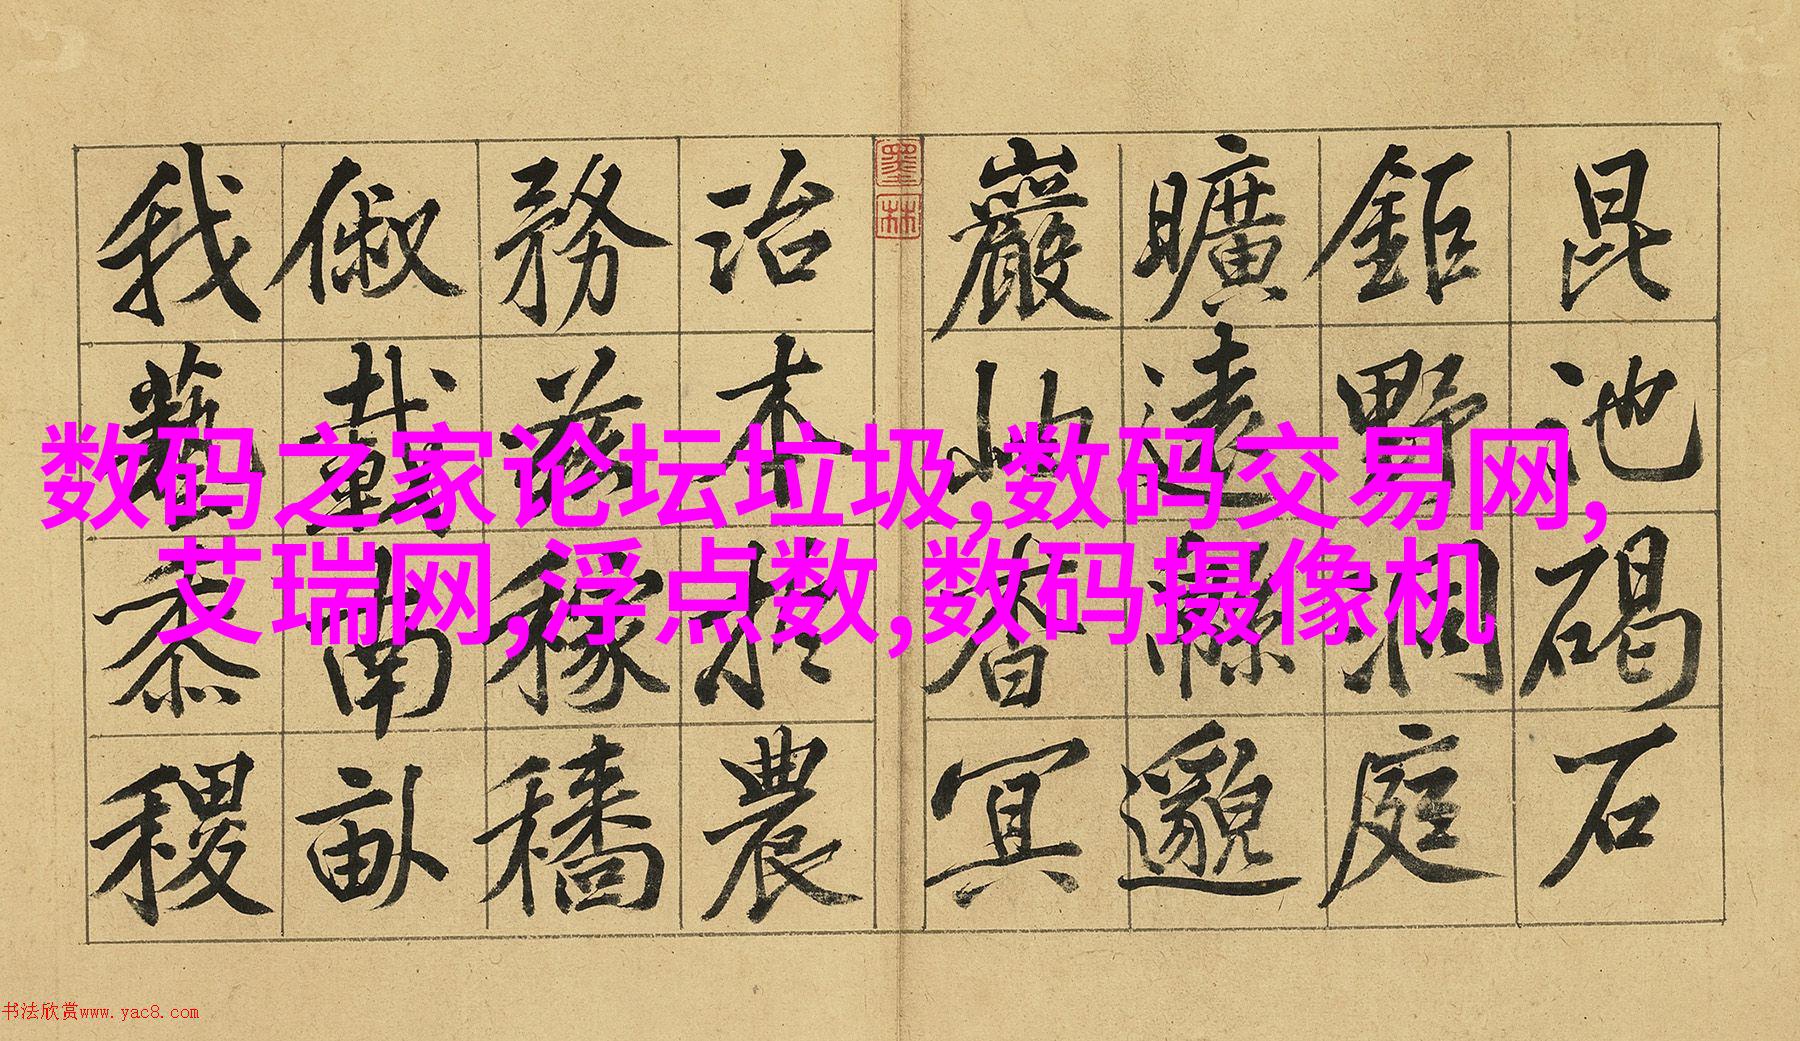 昆池碣石
鉅野洞庭
曠遠緜邈
巖岫杳冥
治本於農
務茲稼穡
俶載南畝
我藝黍稷
墨林
数码之家论坛垃圾,数码交易网,
艾瑞网,浮点数,数码摄像机
书法欣赏www.yac8.com